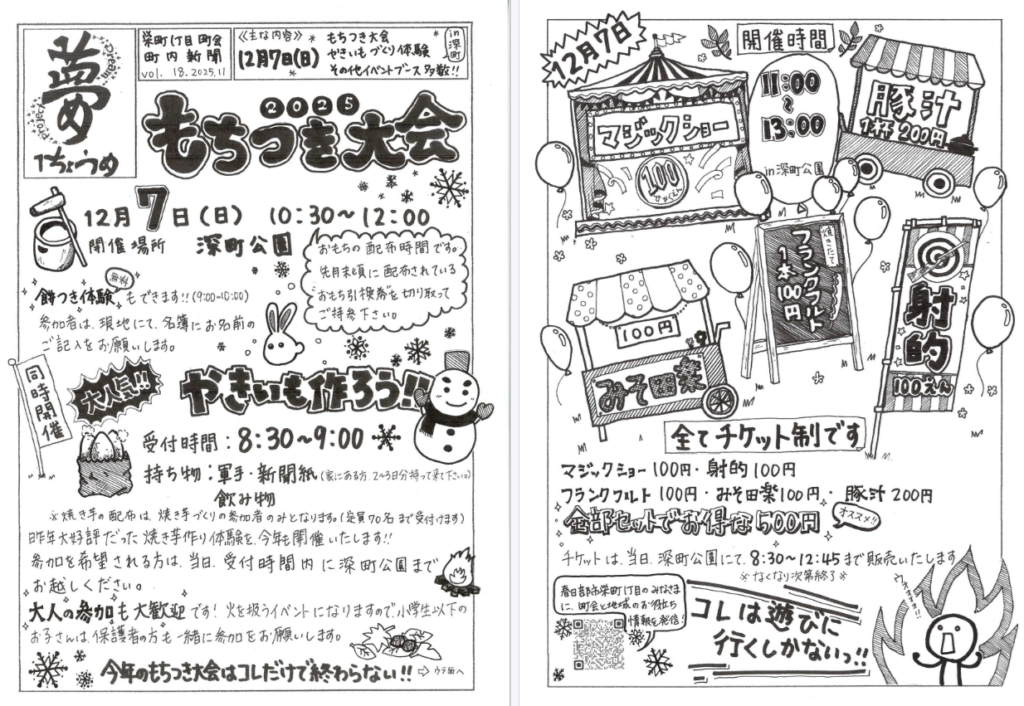 夢
め
1ちょうめ
栄町1丁目町会
町内新聞
vol. 18. 2025.11
《主な内容》
12月7日(日)
もちつき大会
やきいもづくり体験
その他イベントブース多数!!
in深町
2025
もちつき大会
12月7日(日) 10:30～12:00
開催場所 深町公園
おもちの配布時間です。
先月末頃に配布されている
おもち引換券を切り取って
ご持参下さい。
無料
餅つき体験もできます!!(9:00~10:00)
参加者は、現地にて、名簿にお名前の
ご記入をお願いします。
同時開催
大人気!!
やきいも作ろう!!
受付時間:8:30～9:00
持ち物:軍手・新聞紙(家にある方、2~3日分持って来て下さい。)
飲み物
※焼き芋の配布は、焼き芋づくりの参加者のみとなります。(定員70名まで受付けます)
昨年大好評だった焼き芋作り体験を、今年も開催いたします!!
参加を希望される方は、当日、受付時間内に深町公園まで
お越しください。
大人の参加も大歓迎です!火を扱うイベントになりますので、小学生以下の
お子さんは、保護者の方も一緒に参加をお願いします。
今年のもちつき大会はコレだけで終わらない!!⇨ウラ面へ
12月7日
開催時間
11:00
～
13:00
in深町公園
マジックショー
100
豚汁
1杯200円
焼きたて
フランクフルト
1本100円
100円
みそ田楽
射的
100えん
全てチケット制です
マジックショー100円・射的100円
フランクフルト100円・みそ田楽100円・豚汁200円
全部セットでお得な500円
オススメ!!
チケットは、当日、深町公園にて、8:30~12:45まで販売いたします
※なくなり次第終了※
春日部市栄町1丁目のみなさま
に、町会と地域のお役立ち
情報を発信!
コレは遊びに
行くしかないっ!!